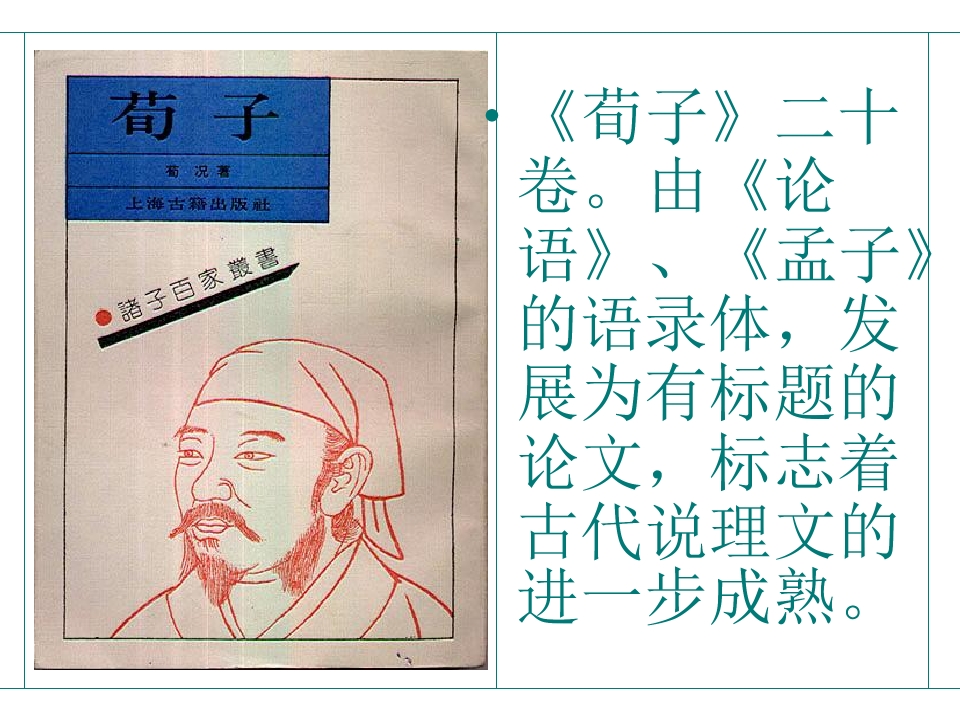 荀 子
荀 况 著
上海古籍出版社
諸子百家叢書
• 《荀子》二十
卷。由《论
语》、《孟子》
的语录体，发
展为有标题的
论文，标志着
古代说理文的
进一步成熟。